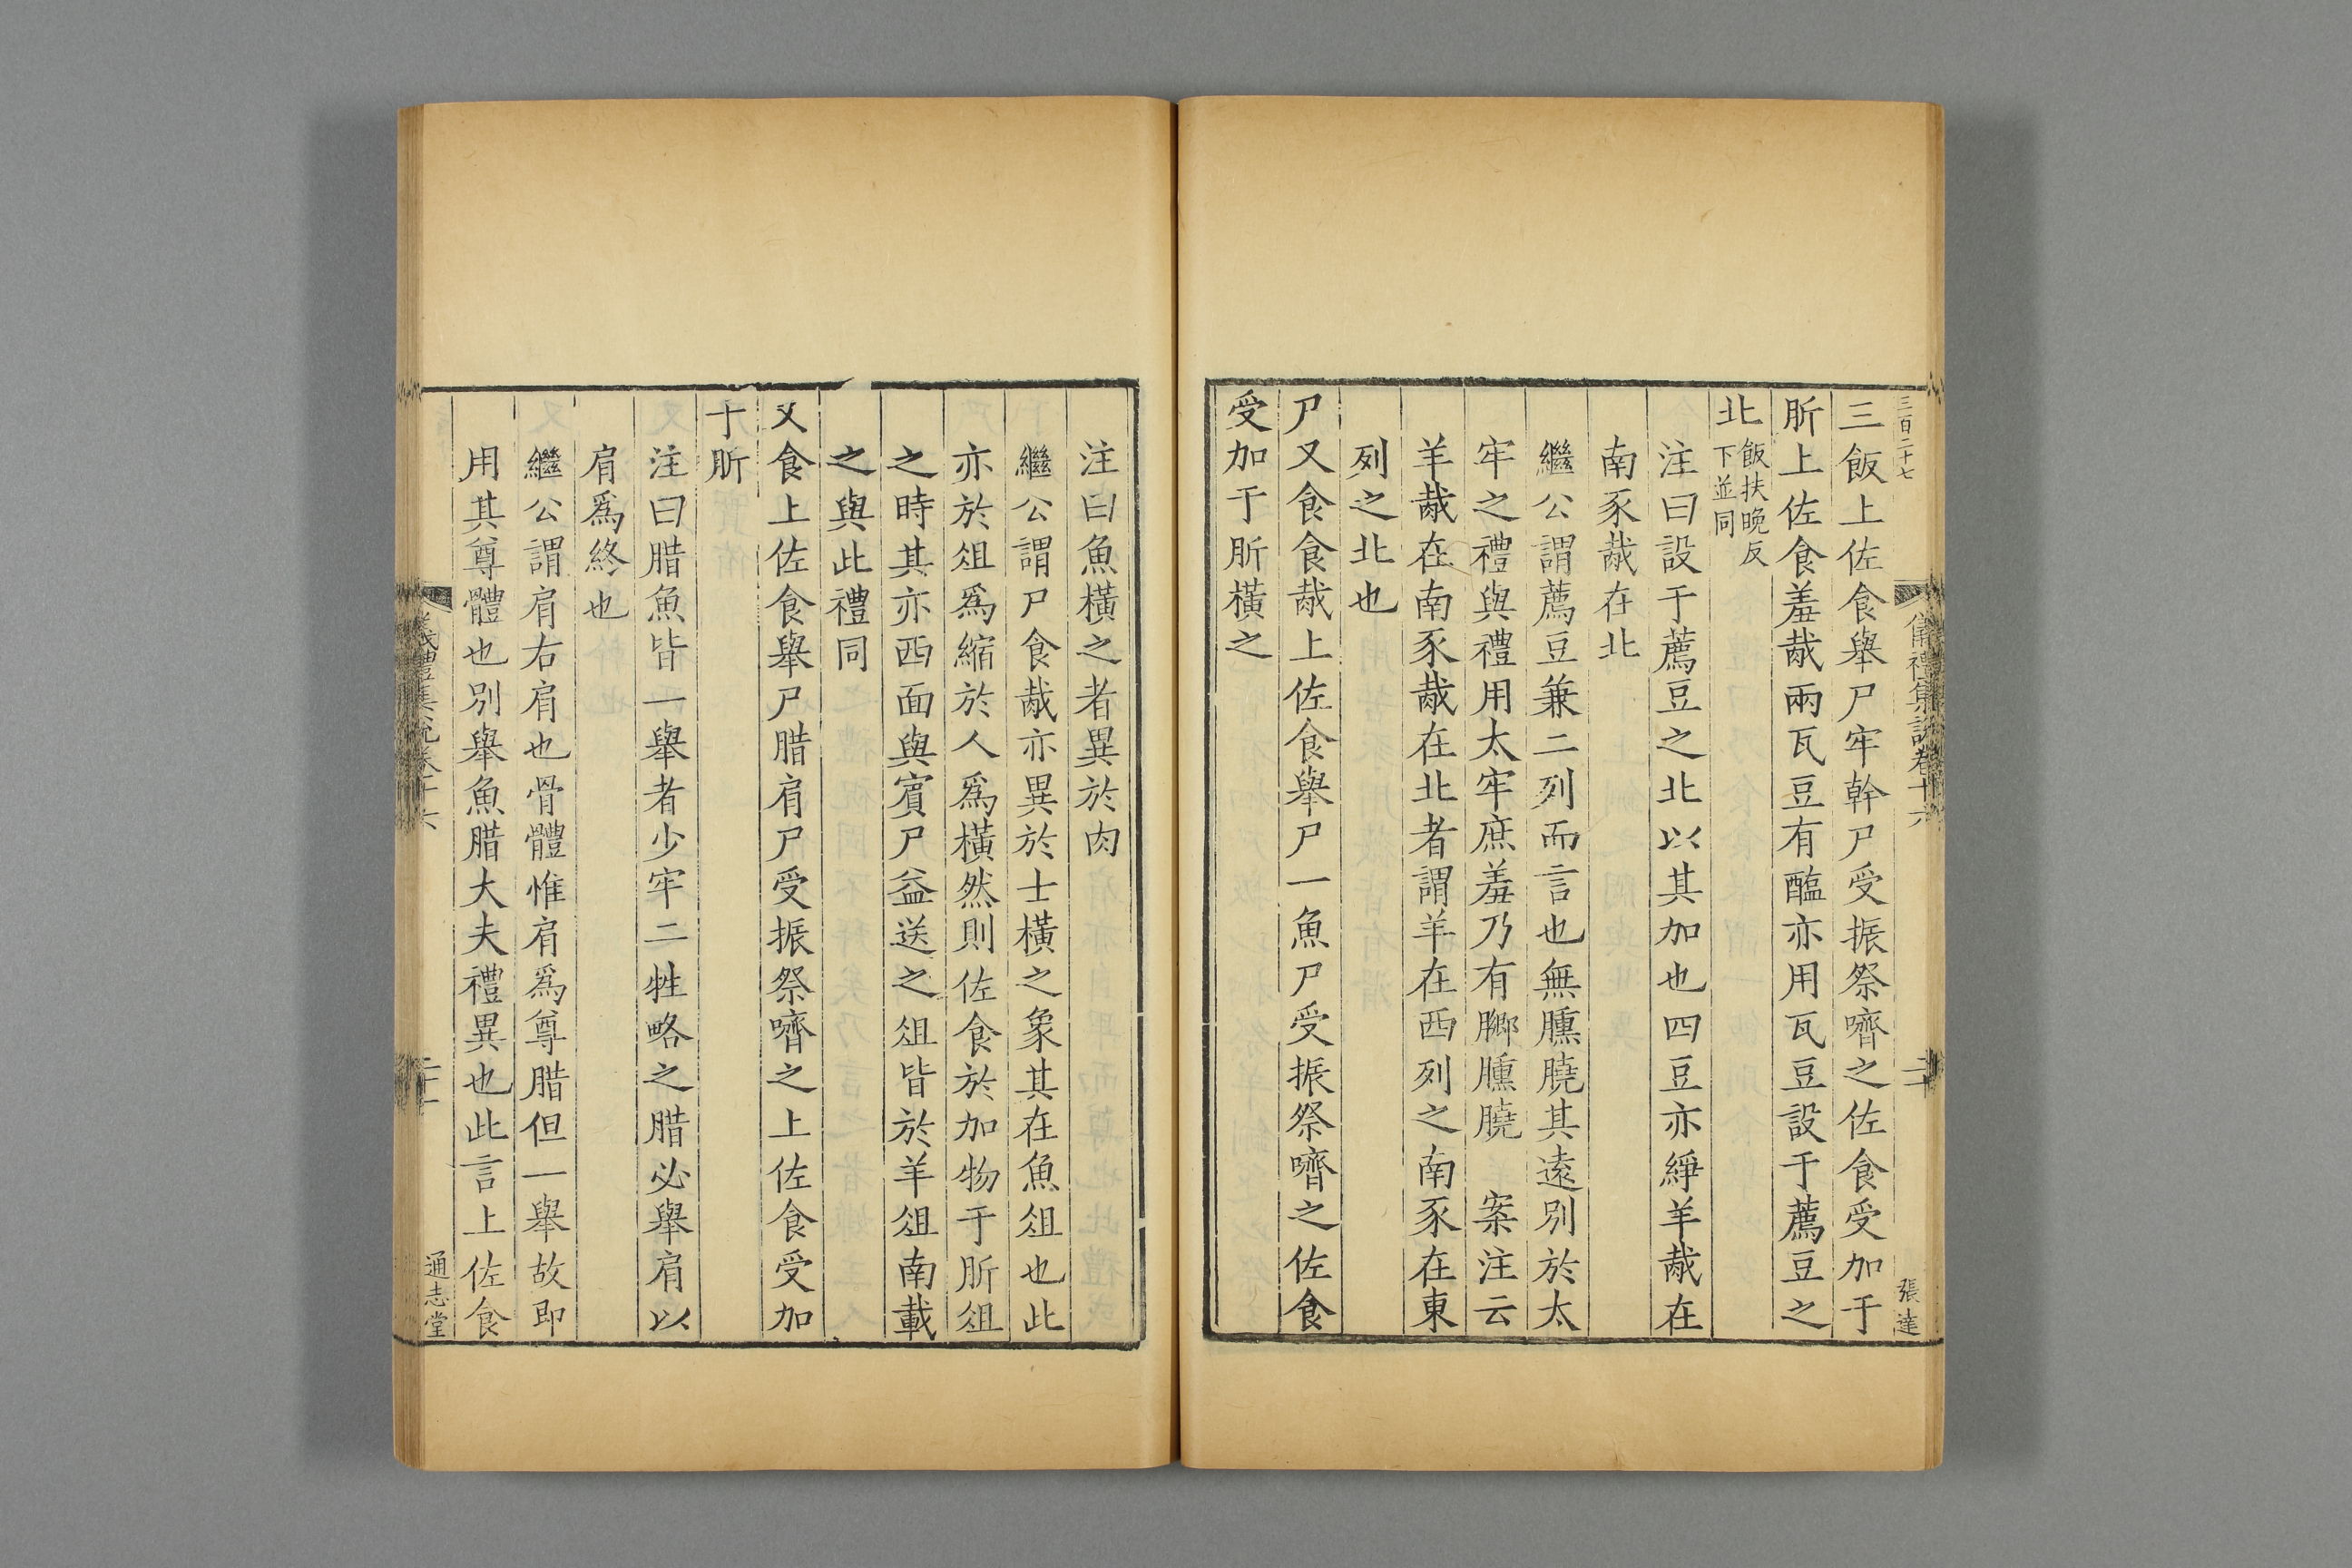 三百二十七
儀禮集說卷十六
張達
三飯上佐食舉尸牢幹尸受振祭嚌之佐食受加于
肵上佐食羞胾兩瓦豆有醢亦用瓦豆設于薦豆之
北飯扶晚反下並同
注曰設于薦豆之北以其加也四豆亦綪羊胾在
南豕胾在北
繼公謂薦豆兼二列而言也無臐膮其遠別於太
牢之禮與禮用太牢庶羞乃有膷臐膮 案注云
羊胾在南豕胾在北者謂羊在西列之南豕在東
列之北也
尸又食食胾上佐食舉尸一魚尸受振祭嚌之佐食
受加于肵橫之
注曰魚橫之者異於肉
繼公謂尸食胾亦異於士橫之象其在魚俎也此
亦於俎爲縮於人爲橫然則佐食於加物于肵俎
之時其亦西面與賓尸益送之俎皆於羊俎南載
之與此禮同
又食上佐食舉尸腊肩尸受振祭嚌之上佐食受加
于肵
注曰腊魚皆一舉者少牢二牲略之腊必舉肩以
肩爲終也
繼公謂肩右肩也骨體惟肩爲尊腊但一舉故即
用其尊體也別舉魚腊大夫禮異也此言上佐食
儀禮集說卷十六
二十一
通志堂